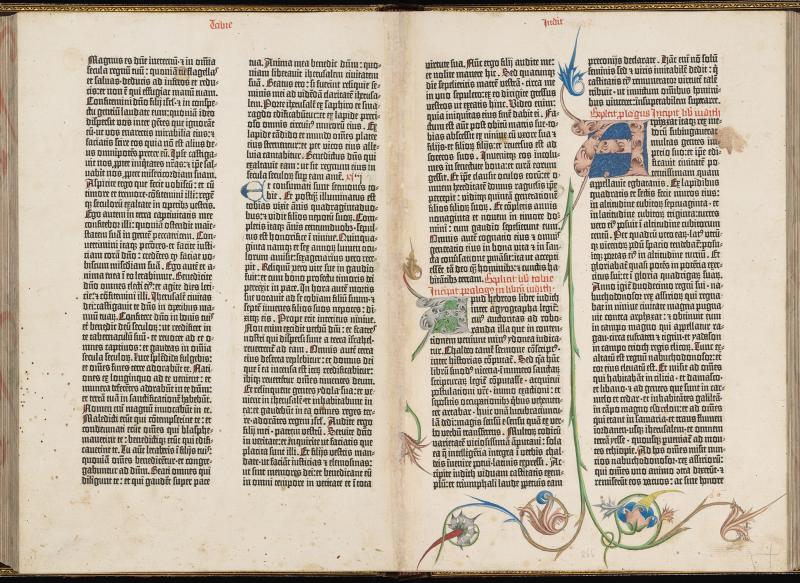 Tobie
Judit
Magnus es dñe in eternū: et in oīnia
secula regnū tuū: quoniā tu flagellas
et saluas· deducis ad inferos et redu-
cis: et non est qui effugiat manū tuam.
Confitemini dño filij israel· et in conspe-
ctu gentiū laudate eum: quoniā ideo
dispersit vos inter gētes que ignorāt
eū· ut vos enarretis mirabilia eius: et
faciatis scire eos quia nō est alius de-
us omnipotēs preter eū. Ipse castiga-
uit nos ꝓpter iniquitates nrās: et ipe sal-
uabit nos ꝓpter misericordiam suam.
Aspicite ergo que fecit vobiscū: et cū
timore et tremore cōfitemini illi: regēq;
seculorū exaltate in operibus vestris.
Ego autem in terra captiuitatis mee
confitebor illi: quoniā ostendit maie-
statem suā in gentē peccatricem. Con-
uertimini itaq; pctōres· et facite iusti-
ciam corā deo: credētes q; faciat vo-
biscum misericordiam suā. Ego autē et a-
nima mea in eo letabimur. Benedicite
dño omnes electi eius: et agite dies leti-
cie· et cōfitemini illi. Iherusalē ciuitas
dei: castigauit te dñs in operibus ma-
nuū tuarū. Confitere dño in bonis tuis·
et benedic deū seculorū: ut reedificet in
te tabernaculū suū· et reuocet ad te o-
mnes captiuos: et gaudeas in omnia
secula seculorū. Luce splēdida fulgebis:
et omēs fines terre adorabūt te. Nati-
ones ex longinquo ad te venient: et
munera deferētes adorabūt in te dñm:
et terrā tuā in sanctificationē habebūt.
Nomen enī magnū inuocabūt in te.
Maledicti erūt qui cōtempserint te: et
condēnati erūt omēs qui blasphe-
mauerint te: benedictiq; erūt qui edifi-
cauerint te. Tu autē letaberis in filijs tuis:
quoniā omēs benedicentur et congre-
gabuntur ad dñm. Beati omnes qui
diligunt te: et qui gaudēt super pace
tua. Anima mea benedic dñm: quo-
niam liberauit iherusalem ciuitatem
suā. Beatus ero si fuerint reliquie se-
minis mei ad vidēdā claritatē iherusa-
lem. Porte iherusalē ex saphiro et sma-
ragdo edificabūtur: et ex lapide precio-
so omnis circuitus murorū eius. Ex
lapide cādido et mundo omēs platee
eius sternentur: et per vicos eius alle-
luia cantabitur. Benedictus dñs qui
exaltauit eam: ut sit regnum eius in
secula seculorum sup eam amē.
Et consumati sunt sermones to-
bie. Et postq; illuminatus est
tobias vixit ānis quadraginta duo-
bus: et vidit filios nepotū suorū. Com-
pletis itaq; ānis centumduobus· sepul-
tus est honorifice in niniue. Quinqua-
ginta nanq; et sex annorū lumen ocu-
lorum amisit: sexagenarius vero rece-
pit. Reliquū vero vite sue in gaudio
fuit: et cum bono profectu timoris dei
perrexit in pace. In hora autē mortis
sue vocauit ad se tobiam filiū suum· et
septē iuuenes filios suos nepotes: di-
xitq; eis. Prope erit interitus niniue.
Non enim excidit verbū dñi: et fratres
nostri qui dispersi sunt a terra israhel
reuertentur ad eam. Omnis autē terra
eius deserta replebitur: et domus dei
que in ea incensa est iterū reedificabitur:
ibiq; reuertētur omēs timentes deum.
Et relinquent gentes ydola sua: et ve-
nient in iherusalē et inhabitabunt in
ea: et gaudebūt in ea omnes reges ter-
re· adorātes regem israel. Audite ergo
filij mei· patrem vestrū. Seruite dño
in veritate: et inquirite ut faciatis que
placita sunt illi. Et filijs vestris man-
date ut faciāt iusticias et elemosinas:
ut sint memores dei: et benedicāt eū
in omni tempore in veritate et in tota
virtute sua. Nūc ergo filij audite me:
et nolite manere hic. Sed quacunq;
die sepelieritis matrē vestrā circa me
in uno sepulcro: ex eo dirigite gressus
vestros ut exeatis hinc. Video enim:
quia iniquitas eius finē dabit ei. Fa-
ctum est autē post obitū matris sue to-
bias abscessit ex niniue cū uxore sua et
filijs et filiorū filijs: et reuersus est ad
soceros suos. Inuenitq; eos incolu-
mes in senectute bona: et curā eorum
gessit. Et ipe clausit oculos eorū: et o-
mnem hereditatē domus raguelis ipe
percepit: viditq; quintā generationē
filios filiorū suorū. Et cōpletis annis
nonaginta et nouem in timore do-
mini: cum gaudio sepelierunt eum.
Omnis autē cognatio eius et omnis
generatio eius in bona vita et in san-
cta conuersatione permāsit: ita ut accepti
essēt tā deo q; hominibus et cunctis ha-
bitātibus terram. Explicit lib' tobie
Incipit prologus in librū iudith:
Apud hebreos liber iudith
inter agyographa legitur:
cuius auctoritas ad robo-
randa illa que in conten-
tionem veniunt minus ydonea iudica-
tur. Chaldeo tamē sermone cōscriptus
inter historias cōputatur. Sed quia hunc
librū sinodus nicena in numero sanctarū
scripturarū legitur cōputasse· acquieui
postulationi vestre· immo exactioni: et
sepositis occupationibus quibus vehemen-
ter artabar· huic unā lucubratiuncu-
lā dedi· magis sensū e sensu quā ex ver-
bo verbū transferens. Multorū codicū
varietatē viciosissimā amputaui: sola
ea que intelligētia integra in verbis chal-
deis inuenire potui latinis expressi. Ac-
cipite iudith viduam castitatis exem-
plū: et triumphali laude perpetuis eam
preconijs declarate. Hāc enī nō solū
feminis sed et viris imitabilē dedit: qui
castitatis eius remunerator virtutē talē
tribuit· ut inuictum omnibus homini-
bus vinceret: et insuperabilem superaret.
Explicit plogus Incipit lib' iudith
Arphaxat itaq; rex me-
dorū subiugauerat
multas gentes im-
perio suo: et ipe edi-
ficauit ciuitatē po-
tentissimam quam
appellauit egbathanis. Ex lapidibus
quadratis et sectis fecit muros eius·
in latitudine cubitorū septuaginta· et
in altitudine cubitorū triginta: turres
vero eius posuit in altitudinē cubitorum
centū. Per quadrū vero earū latus utrū-
q; vicenorū pedū spacio tendebatur: posu-
itq; portas eius in altitudinē turrium. Et
gloriabatur quasi potēs in potētia exer-
citus sui: et in gloria quadrigarū suarū.
Anno igitur duodecimo regni sui· na-
buchodonosor rex assiriorū qui regna-
bat in niniue ciuitate magna pugna-
uit contra arphaxat· et obtinuit eum
in campo magno qui appellatur ra-
gau· circa eufraten et tigrin et yadason
in campo erioch regis elicorū. Tunc ex-
altatū est regnū nabuchodonosor: et
cor eius eleuatū est. Et misit ad omēs
qui habitabāt in cilicia et damasco·
et libano· et ad gentes que sunt in car-
melo et cedar· et inhabitātes galileā
in cāpo magno esdrelon: et ad omēs
qui erant in samaria· et trans flumen
iordanem· usq; iherusalem· et omnem
terrā yesse quousq; pueniat̄ ad mon-
tes ethiopie. Ad hos omēs misit nun-
cios nabuchodonosor rex assiriorū:
qui omēs uno animo cōtradixerūt· et
remiserūt eos vacuos: ac sine honore